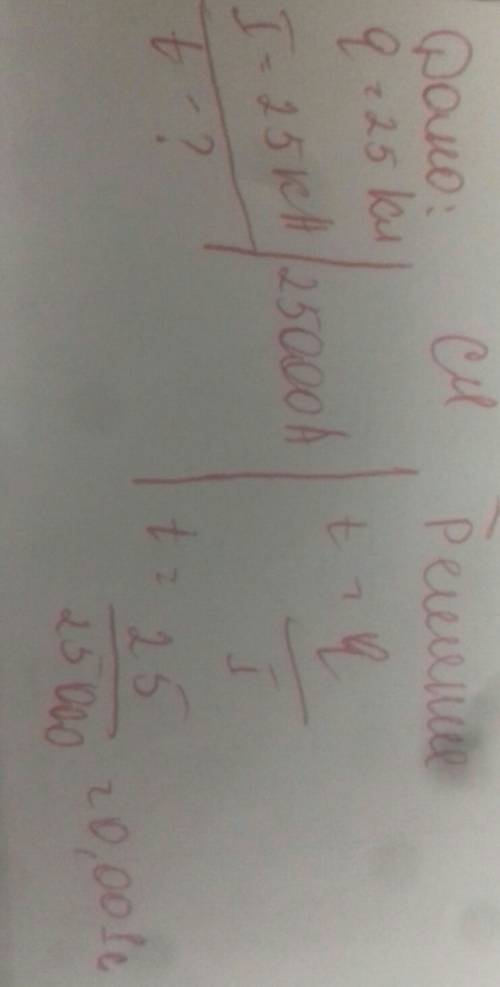 Дано:
q = 25 кл
I = 25 кА
t - ?
СИ
25000 А
Решение
t = q
I
t = 25
25000
= 0,001 с